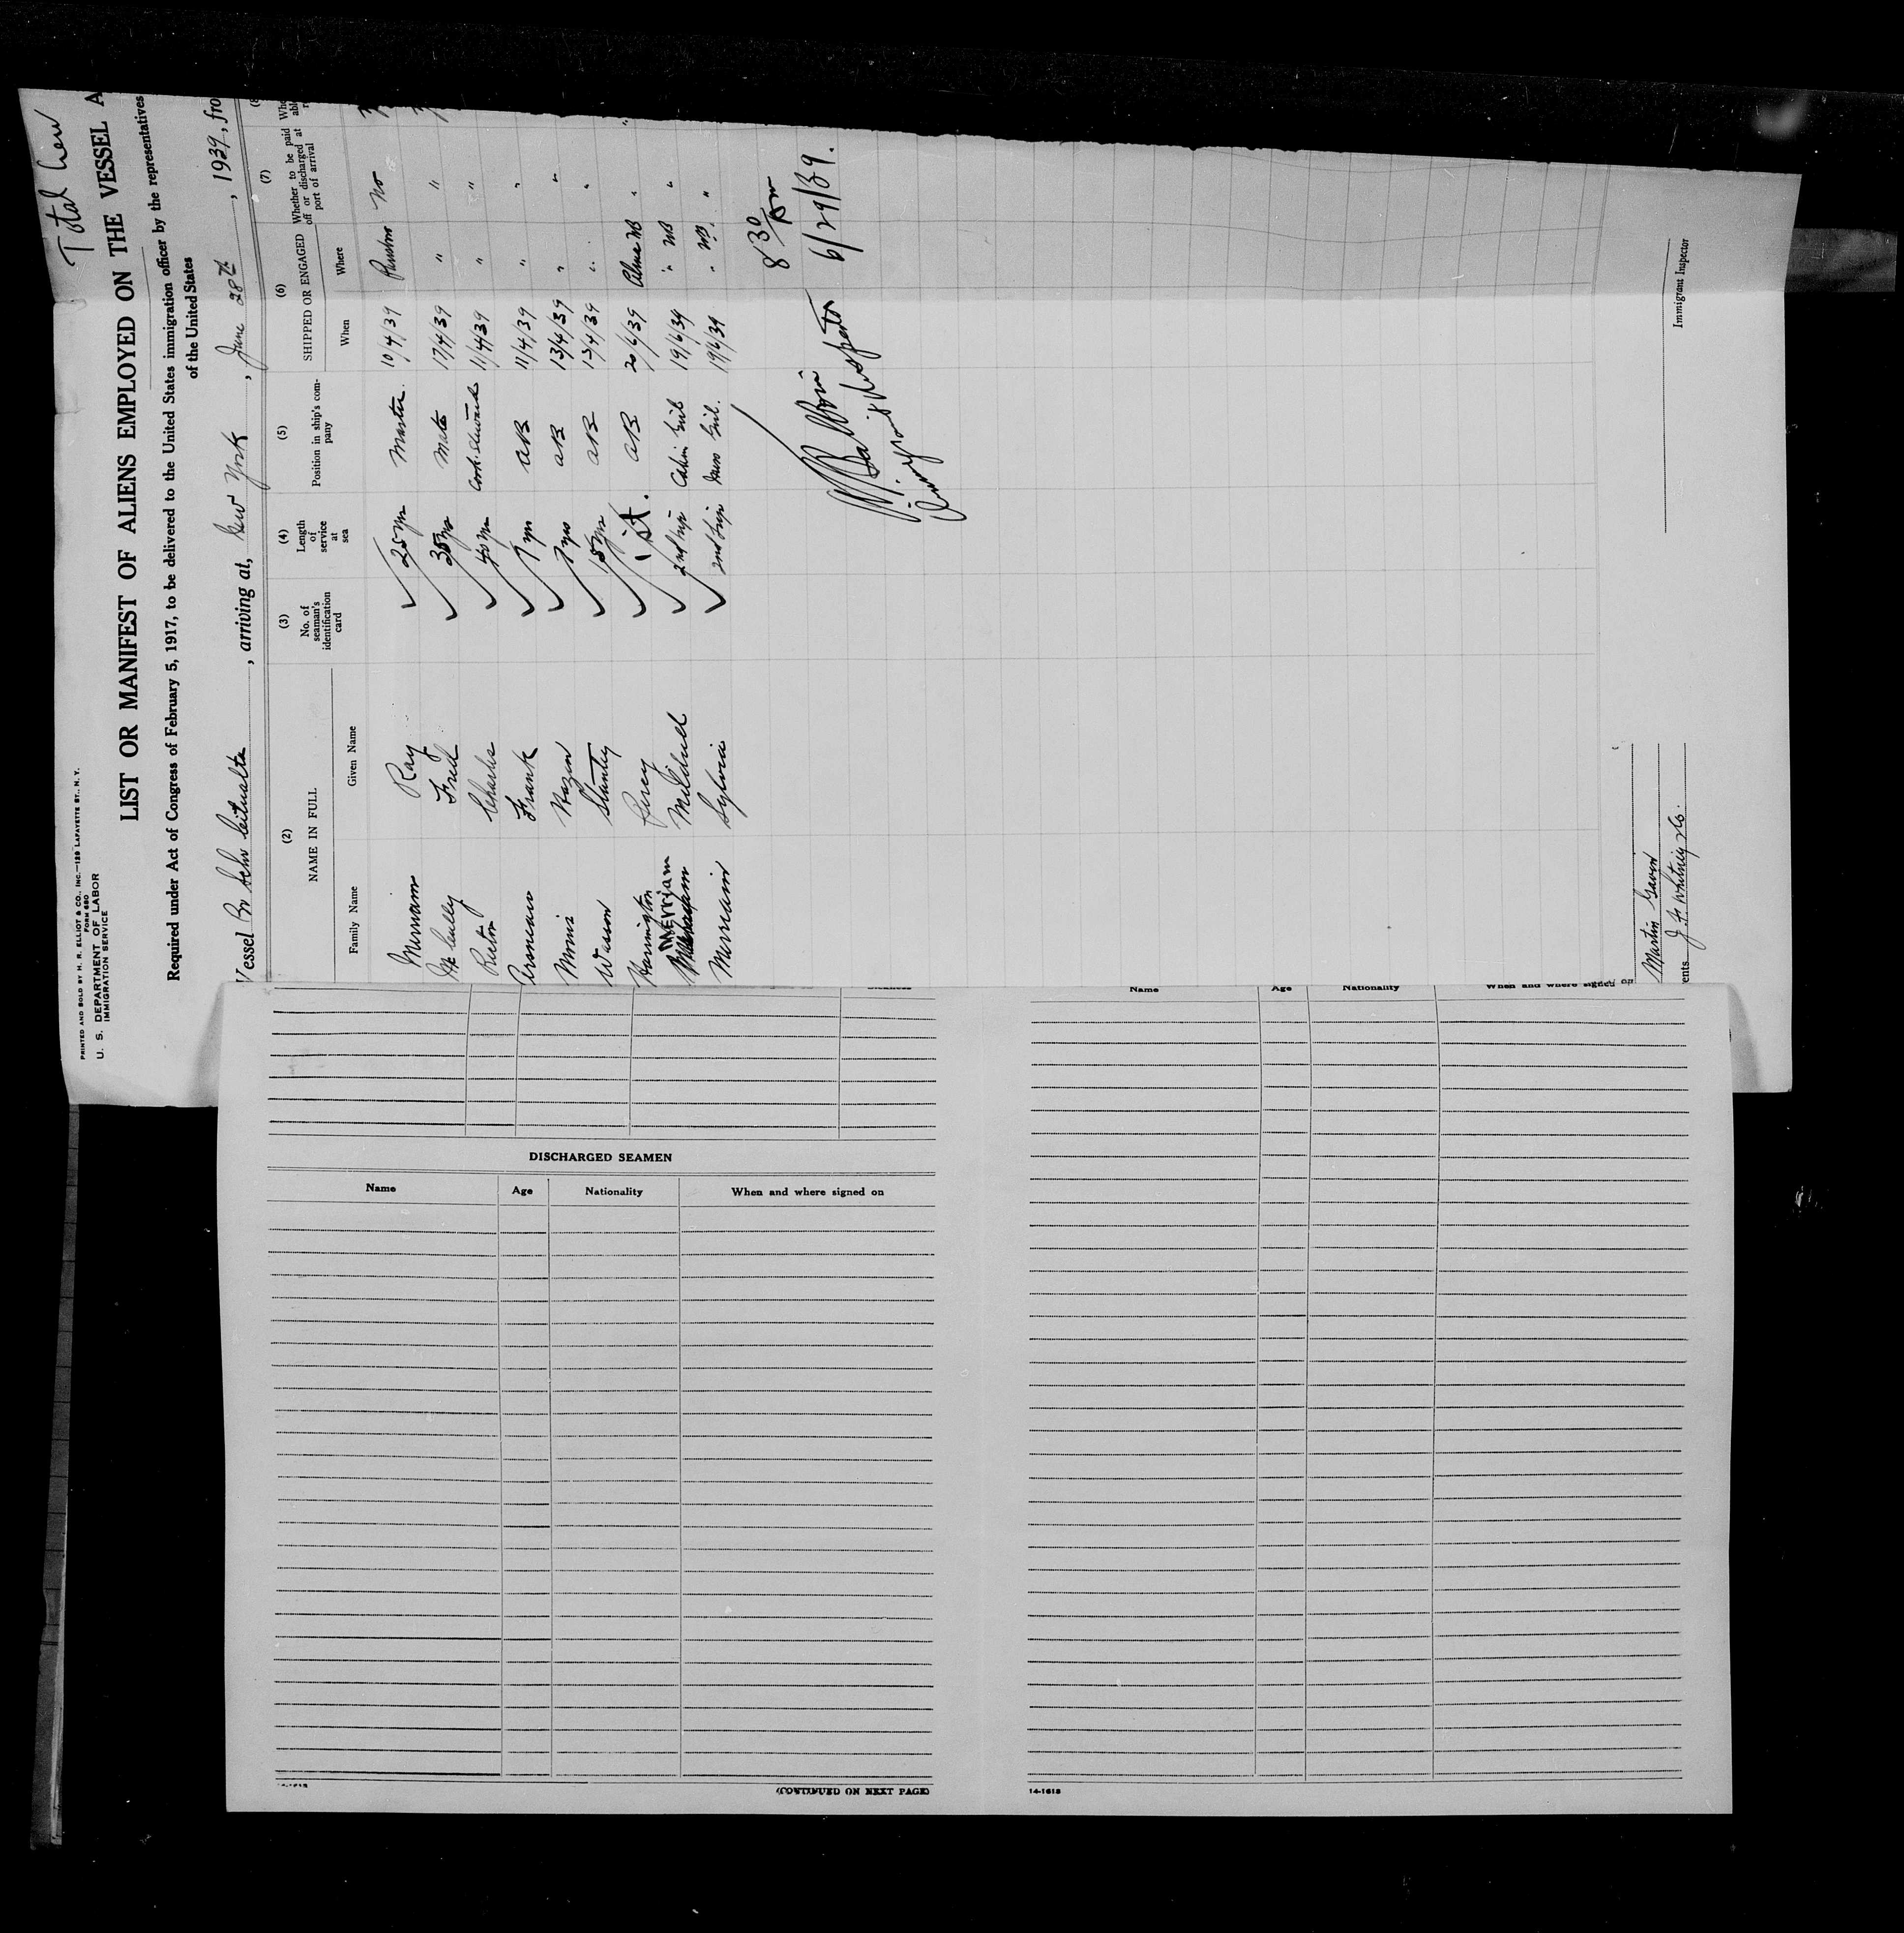 Total Crew
PRINTED AND SOLD BY H. R. ELLIOT & CO., INC.—129 LAFAYETTE ST., N. Y.
FORM 680
U. S. DEPARTMENT OF LABOR
IMMIGRATION SERVICE
LIST OR MANIFEST OF ALIENS EMPLOYED ON THE VESSEL A
Required under Act of Congress of February 5, 1917, to be delivered to the United States immigration officer by the representatives
of the United States
Vessel Br Schr, arriving at, New York, June 28th, 1939, fro
(2) (3) (4) (5) (6) (7)
NAME IN FULL No. of seaman's identification card Length of service at sea Position in ship's company SHIPPED OR ENGAGED Whether to be paid off or discharged at port of arrival
Family Name Given Name When Where
Merriam Ray 25 yrs Master 10/4/39 No
McCully Fred 35 yrs Mate 17/4/39 " "
Charles 40 yrs Cook-Steward 11/4/39 " "
Frank 7 yrs AB 11/4/39 " "
Morris Hazen 7 yrs AB 13/4/39 " "
Wasson Stanley 15 yrs AB 13/4/39 " "
Harrington Percy 1st. AB 20/6/39 Alma NB "
Merriam Mildred 2nd trip Cabin Girl 19/6/39 " NB "
Merriam Sylvia 2nd trip Mess Girl. 19/6/39 " NB "
8 30/Am
6/29/39.
Immigrant Inspector
Immigrant Inspector
Martin Gavin
ents J. F. Whitney & Co.
Name Age Nationality When and where signed on
DISCHARGED SEAMEN
Name Age Nationality When and where signed on
(CONTINUED ON NEXT PAGE)
14-1618